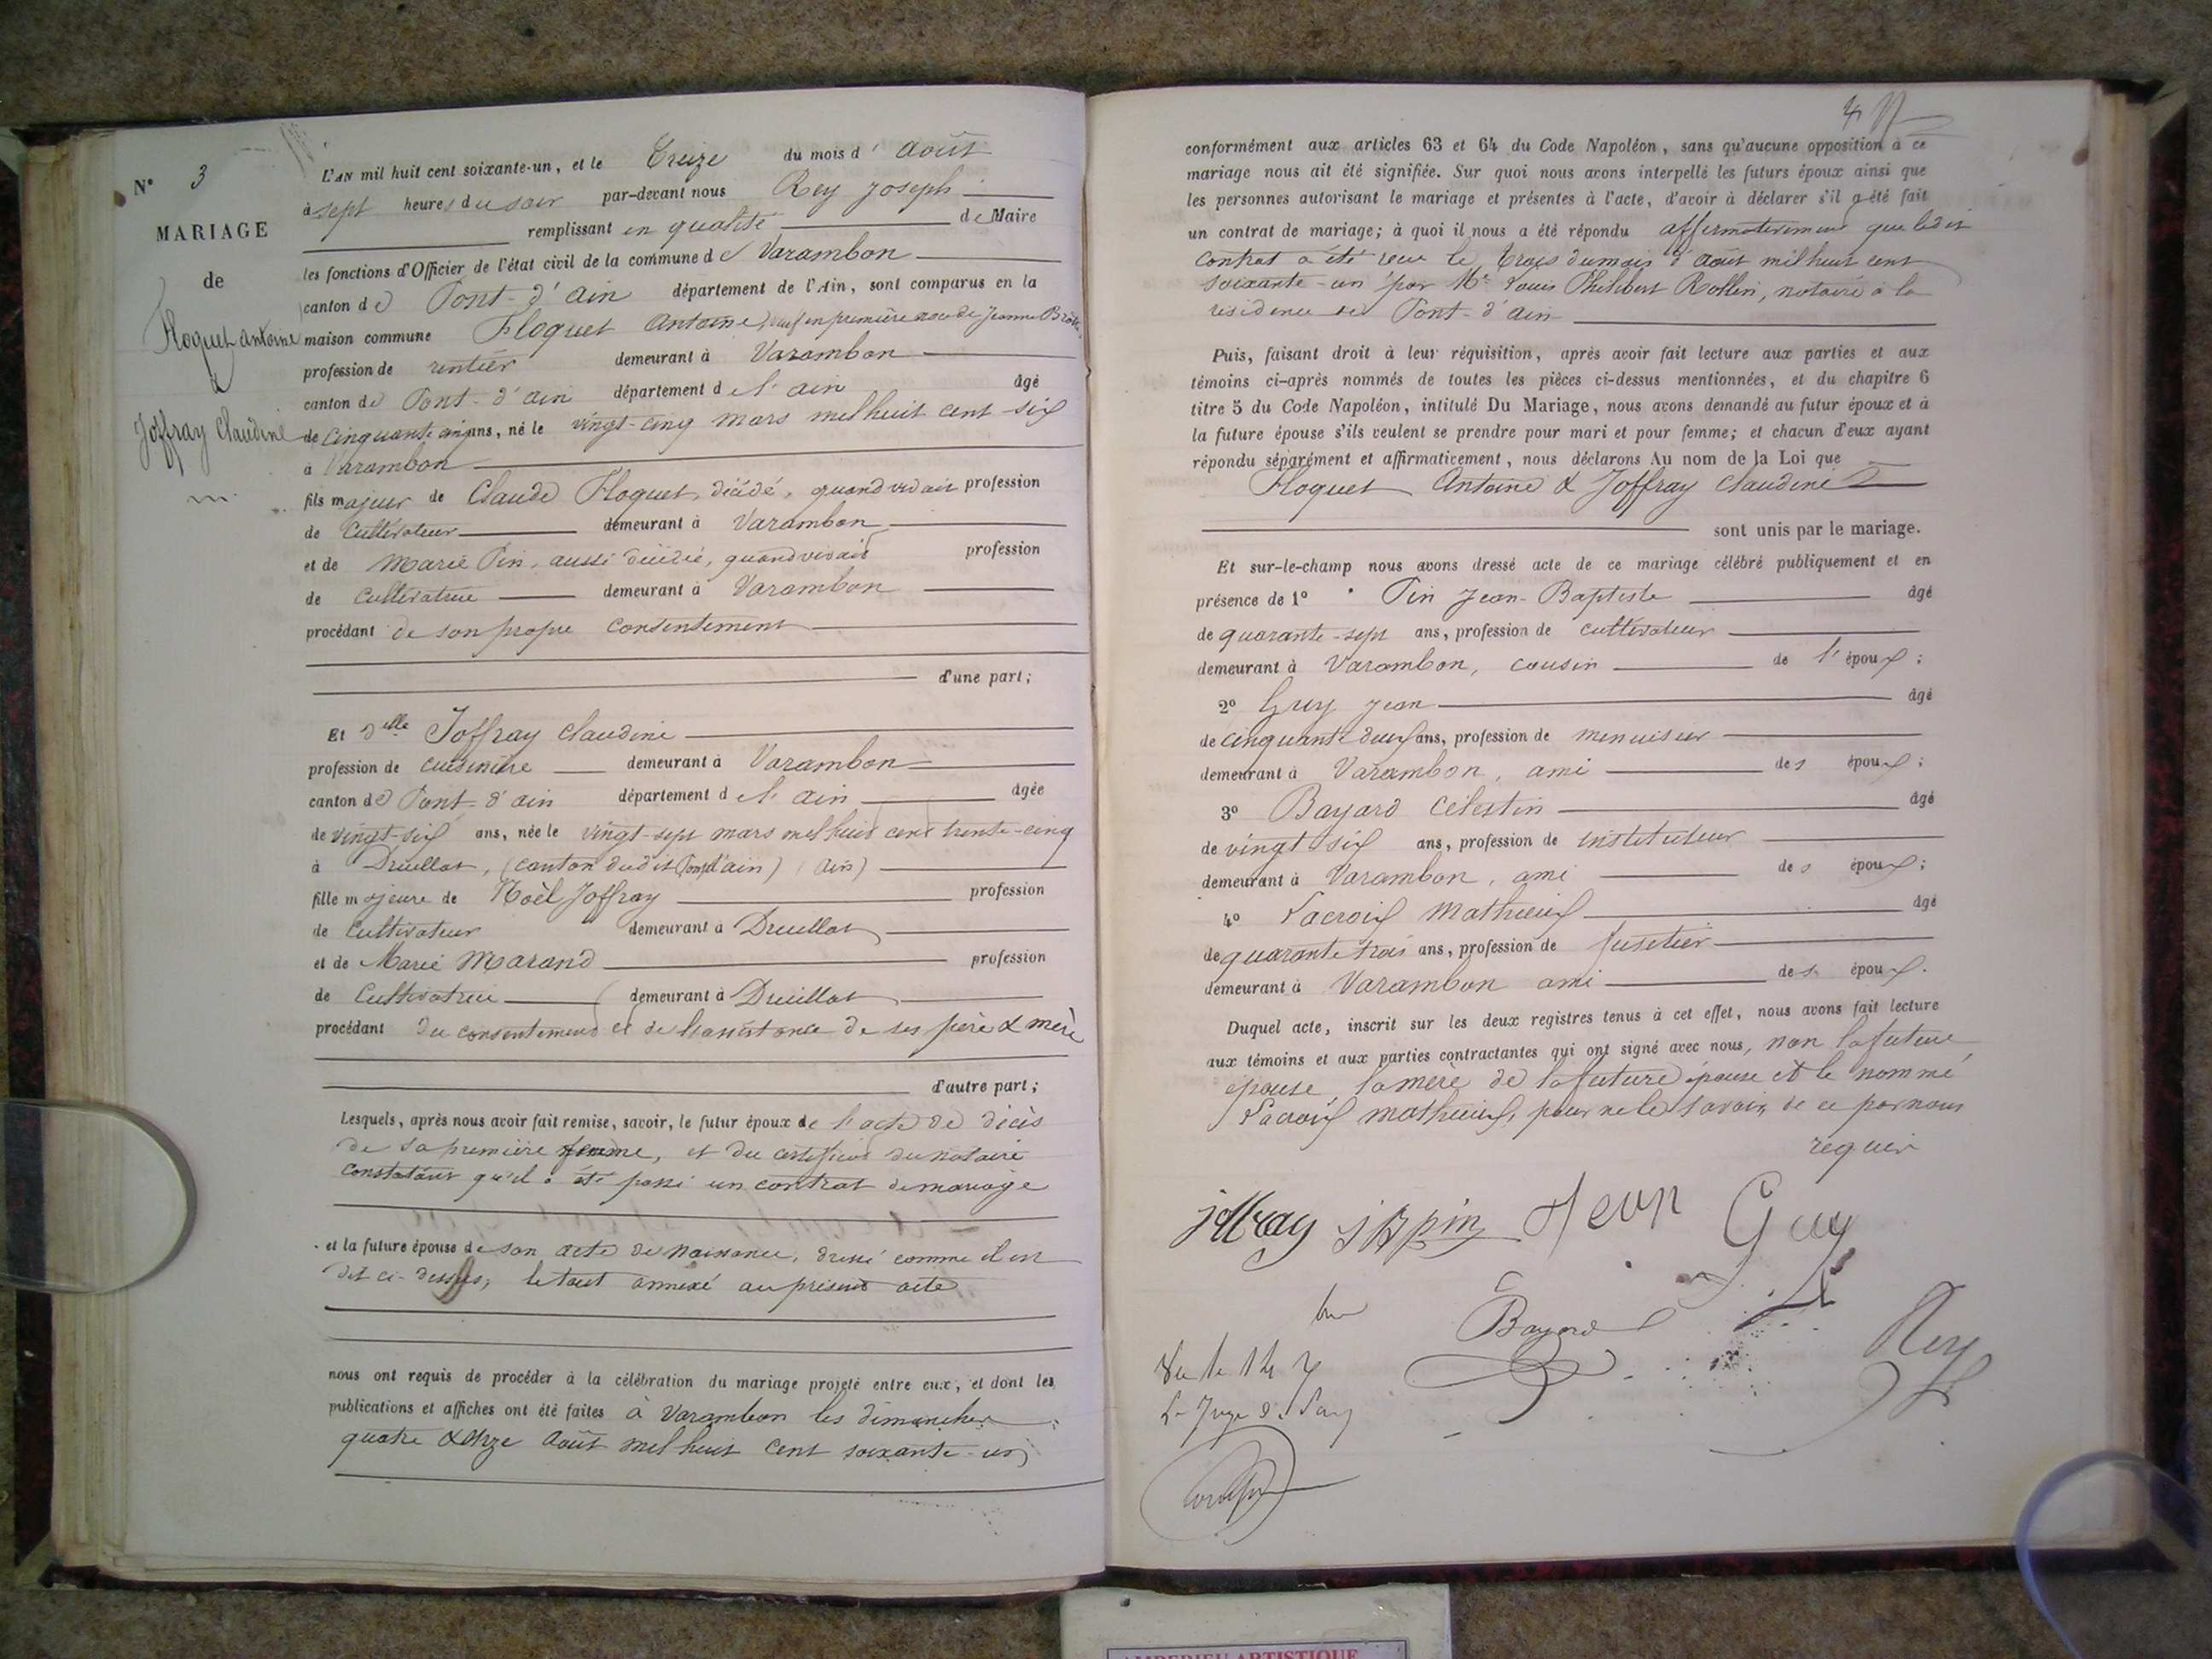 N° 3
MARIAGE
de
Floquet Antoine
&
Joffray Claudine
L'AN mil huit cent soixante-un, et le Treize du mois d' août
à sept heures du soir par-devant nous Rey Joseph
remplissant en qualité de Maire
les fonctions d'Officier de l'état civil de la commune de Varambon
canton de Pont-d'ain département de l'Ain, sont comparus en la
maison commune Floquet Antoine, veuf en première noce de Jeanne
profession de rentier demeurant à Varambon
canton de Pont-d'ain département de l'ain âgé
de cinquante cinq ans, né le vingt-cinq mars mil huit cent six
à Varambon
fils majeur de Claude Floquet, décédé, quand vivait profession
de Cultivateur demeurant à Varambon
et de Marie Pin, aussi décédée, quand vivait profession
de Cultivatrice demeurant à Varambon
procédant de son propre consentement
d'une part;
Et Delle Joffray Claudine
profession de cuisinière demeurant à Varambon
canton de Pont-d'ain département de l'ain âgée
de vingt-six ans, née le vingt-sept mars mil huit cent trente-cinq
à Druillat, (canton dudit Pont d'ain) (Ain)
fille majeure de Noël Joffray profession
de Cultivateur demeurant à Druillat
et de Marie Marand profession
de Cultivatrice demeurant à Druillat
procédant du consentement et de l'assistance de ses père & mère
d'autre part;
Lesquels, après nous avoir fait remise, savoir, le futur époux de l'acte de décès
de sa première femme, et du certificat du notaire
constatant qu'il a été passé un contrat de mariage
et la future épouse de son acte de naissance, dressé comme il est
dit ci-dessus, le tout annexé au présent acte
nous ont requis de procéder à la célébration du mariage projeté entre eux, et dont les
publications et affiches ont été faites à Varambon les dimanches
quatre & onze août mil huit cent soixante-un
4
conformément aux articles 63 et 64 du Code Napoléon, sans qu'aucune opposition à ce
mariage nous ait été signifiée. Sur quoi nous avons interpellé les futurs époux ainsi que
les personnes autorisant le mariage et présentes à l'acte, d'avoir à déclarer s'il a été fait
un contrat de mariage; à quoi il nous a été répondu affirmativement que ledit
contrat a été reçu le trois du mois d'août mil huit cent
soixante-un par Me Louis Philibert Rollin, notaire à la
résidence de Pont-d'ain
Puis, faisant droit à leur réquisition, après avoir fait lecture aux parties et aux
témoins ci-après nommés de toutes les pièces ci-dessus mentionnées, et du chapitre 6
titre 5 du Code Napoléon, intitulé Du Mariage, nous avons demandé au futur époux et à
la future épouse s'ils veulent se prendre pour mari et pour femme; et chacun d'eux ayant
répondu séparément et affirmativement, nous déclarons Au nom de la Loi que
Floquet Antoine & Joffray Claudine
sont unis par le mariage.
Et sur-le-champ nous avons dressé acte de ce mariage célébré publiquement et en
présence de 1° Pin Jean-Baptiste âgé
de quarante-sept ans, profession de cultivateur
demeurant à Varambon, cousin de l'époux;
2° Guy Jean âgé
de cinquante deux ans, profession de menuisier
demeurant à Varambon, ami des époux;
3° Bayard Célestin âgé
de vingt six ans, profession de instituteur
demeurant à Varambon, ami des époux;
4° Lacroix Mathieu âgé
de quarante trois ans, profession de
demeurant à Varambon ami des époux.
Duquel acte, inscrit sur les deux registres tenus à cet effet, nous avons fait lecture
aux témoins et aux parties contractantes qui ont signé avec nous, non la future
épouse, la mère de la future épouse et le nommé
Lacroix Mathieu, pour ne le savoir, de ce par nous
requis
joffray J B pin Jean Guy
Bayard
Rey
Le Juge de Paix
AMBERIEU ARTISTIQUE